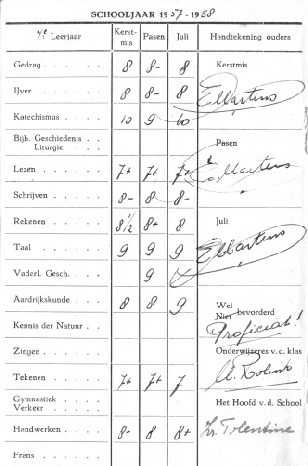 SCHOOLJAAR 1957-1958
4e Leerjaar Kerst-mis Pasen Juli Handtekening ouders
Gedrag 8 8- 8 Kerstmis
IJver 8 8- 8 E Martens
Katechismus 10 9 10
Bijb. Geschieden's
Liturgie Pasen
Lezen 7+ 7+ 7+ E Martens
Schrijven 8- 8- 8-
Rekenen 8½ 8+ 8 Juli
Taal 9 9 9 E Martens
Vaderl. Gesch. 9
Aardrijkskunde 8 8 9 Wel
Niet bevorderd
Kennis der Natuur Proficiat!
Zingen Onderwijzeres v.e. klas
Tekenen 7+ 7+ 7
Gymnastiek
Verkeer Het Hoofd v.d. School
Handwerken 8- 8 8+ Zr. Tolentine
Frans